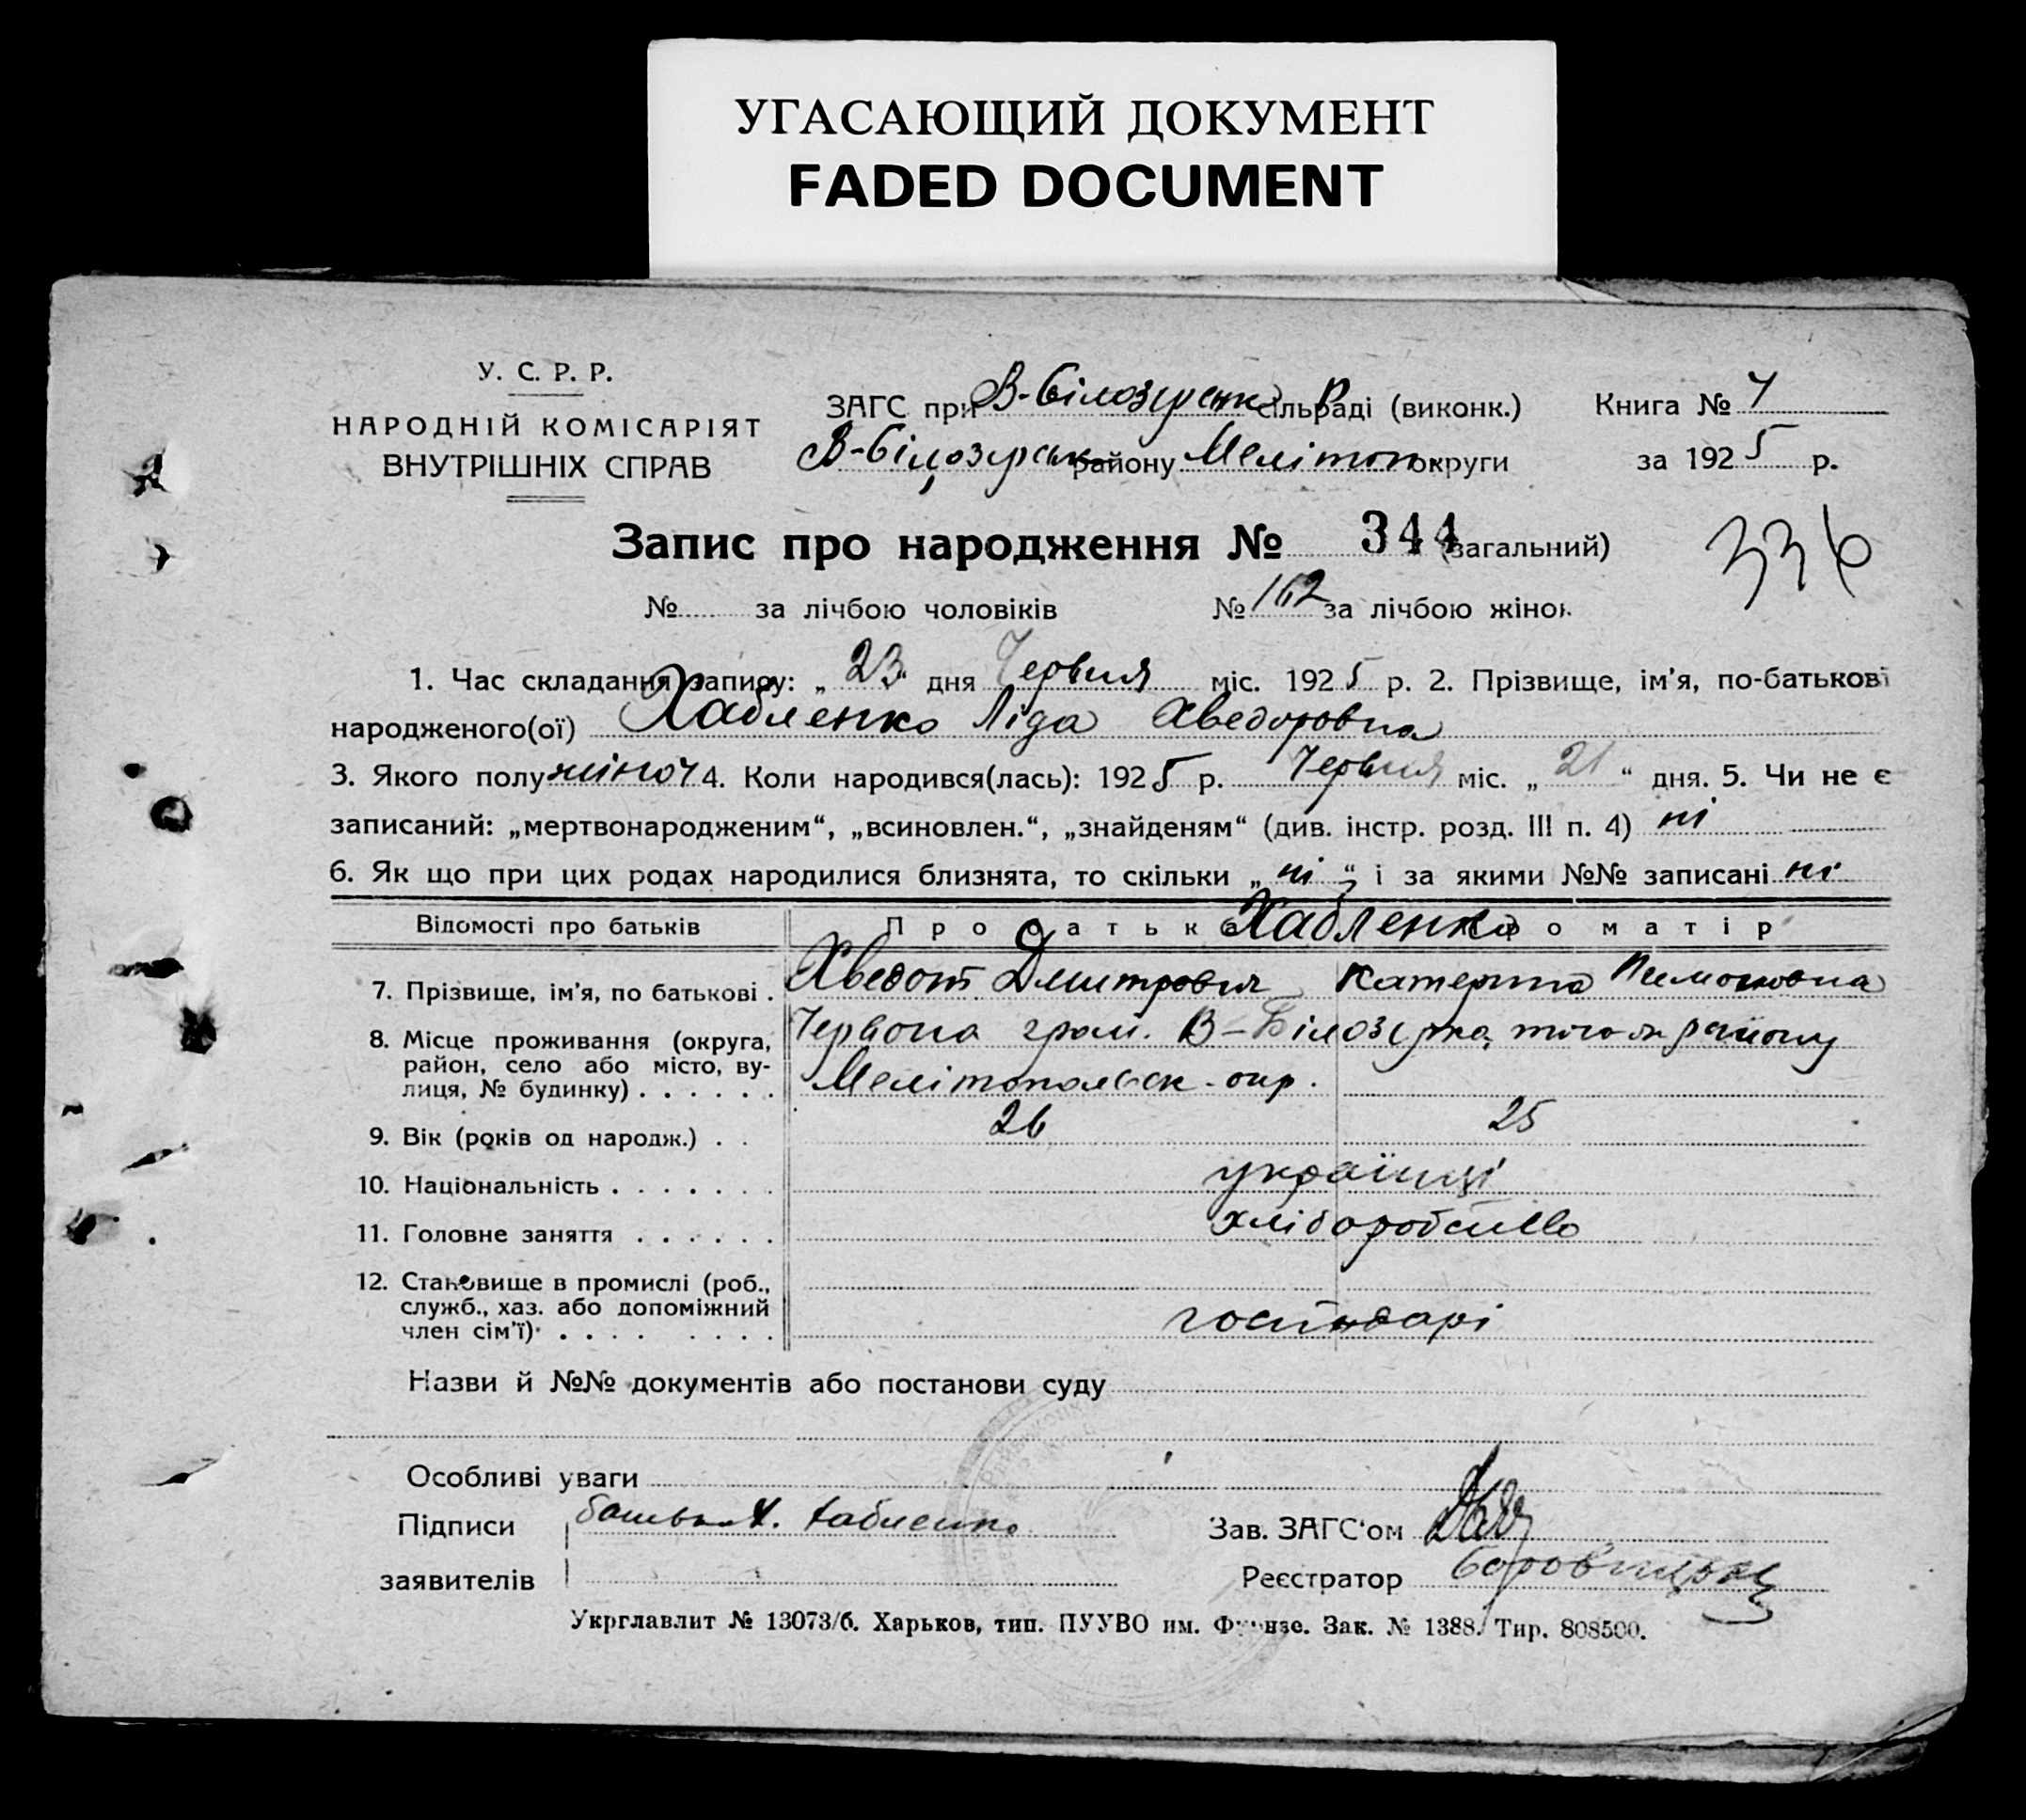 УГАСАЮЩИЙ ДОКУМЕНТ
FADED DOCUMENT
У. С. Р. Р.
НАРОДНІЙ КОМІСАРІЯТ
ВНУТРІШНІХ СПРАВ
ЗАГС при В-Білозерськ сільраді (виконк.) Книга № 7
В-Білозерськ району Мелітоп. округи за 1925 р.
Запис про народження № 344 (загальний)
336
№ за лічбою чоловіків № 162 за лічбою жінок
1. Час складання запису: „ 23 дня Червня міс. 1925 р. 2. Прізвище, ім'я, по-батькові
народженого(ої) Хабленко Ліда Хведоровна
3. Якого полу жіноч 4. Коли народився(лась): 1925 р. Червня міс. „ 21 “ дня. 5. Чи не є
записаний: „мертвонародженим“, „всиновлен.“, „знайденям“ (див. інстр. розд. III п. 4) ні
6. Як що при цих родах народилися близнята, то скільки „ ні “ і за якими №№ записані ні
Відомості про батьків Про батька Хабленко Про матір
7. Прізвище, ім'я, по батькові . Хведот Дмитрович Катерина Пимоновна
8. Місце проживання (округа, Червона гром. В-Білозерка, того ж району
район, село або місто, ву-
лиця, № будинку) . . . . . . Мелітопольськ. окр.
9. Вік (років од народж.) . . 26 25
10. Національність . . . . . . . українці
11. Головне заняття . . . . . . хліборобство
12. Становище в промислі (роб.,
служб., хаз. або допоміжний
член сім'ї) . . . . . . . . господарі
Назви й №№ документів або постанови суду
Особливі уваги
Підписи батько Х. Хабленко Зав. ЗАГС'ом
заявителів Реєстратор
Укрглавлит № 13073/б. Харьков, тип. ПУУВО им. Фрунзе. Зак. № 1388. Тир. 808500.